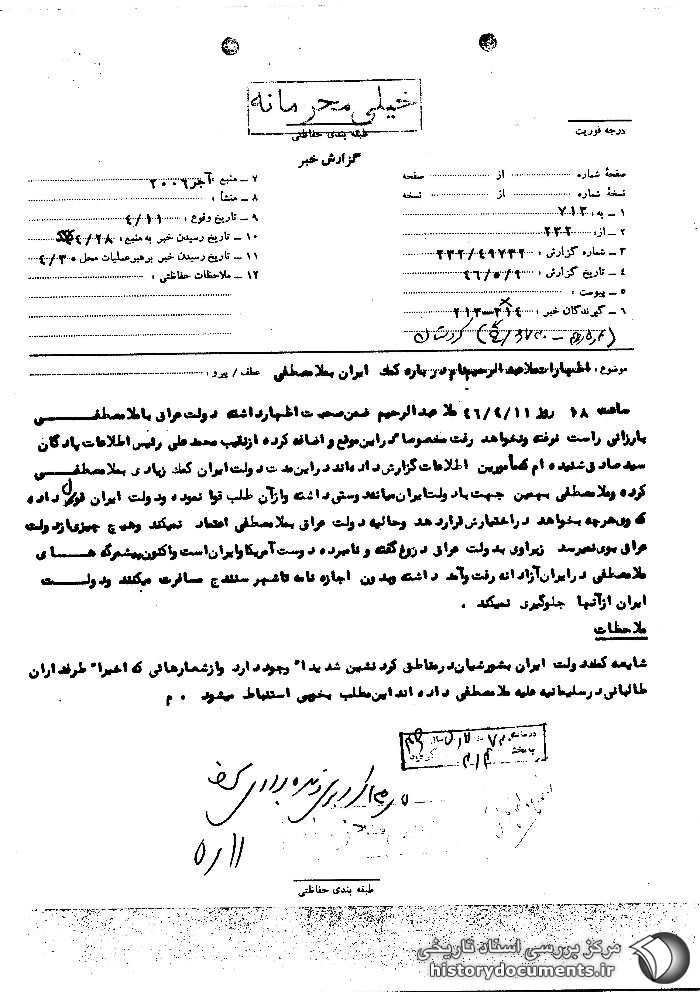 خیلی محرمانه
طبقه بندی حفاظتی
گزارش خبر
درجه فوریت
صفحهٔ شماره از صفحه
نسخهٔ شماره از نسخه
۱ ـ به: ۷۱۳
۲ ـ از: ۲۳۲
۳ ـ شماره گزارش: ۲۳۲/۴۹۷۳۲
۴ ـ تاریخ گزارش: ۴۶/۵/۹
۵ ـ پیوست:
۶ ـ گیرندگان خبر: ۳۱۴-۲۱۳
کردستان
۷ ـ منبع: آجر ۲۰۰۶
۸ ـ منشأ:
۹ ـ تاریخ وقوع: ۴/۱۱
۱۰ ـ تاریخ رسیدن خبر به منبع: ۴/۲۸
۱۱ ـ تاریخ رسیدن خبر برهبر عملیات محل ۴/۳۰
۱۲ ـ ملاحظات حفاظتی:
موضوع: اظهارات ملا عبدالرحیم درباره کمک ایران بملامصطفی عطف / پیرو:
ساعت ۱۸ روز ۴۶/۴/۱۱ ملا عبدالرحیم ضمن صحبت اظهار داشته دولت عراق با ملامصطفـــی
بارزانی راست نرفته ونخواهد رفت مخصوصا در این موقع و اضافه کرده از نقیب محمد علی رئیس اطلاعات پادگان
سید صادق شنیده ام که مأمورین اطلاعات گزارش داده اند در این مدت دولت ایران کمک زیادی بملامصطفـــی
کرده وملامصطفی بهمین جهت با دولت ایران میانه دوستی داشته واز آن طلب قوا نموده ودولت ایران قول داده
که وی هرچه بخواهد در اختیارش قرار دهد وحالیه دولت عراق بملامصطفی اعتماد نمیکند وهیچ چیزی از دولت
عراق بوی نمیرسد زیرا وی بدولت عراق دروغ گفته و نامبرده دوست آمریکا وایران است واکنون پیشمرگه هـــای
ملامصطفی در ایران آزادانه رفت وآمد داشته وبدون اجازه نامه تا شهر سنندج مسافرت میکنند ودولـــت
ایران از آنها جلوگیری نمیکند .
ملاحظات
شایعه کمک دولت ایران بشورشیان در مناطق کرد نشین شدیداً وجود دارد واز شعارهائی که اخیراً طرفداران
طالبانی در سلیمانیه علیه ملامصطفی داده اند این مطلب بخوبی استنباط میشود . م
۵/۱۱
طبقه بندی حفاظتی
مرکز بررسی اسناد تاریخی
historydocuments.ir